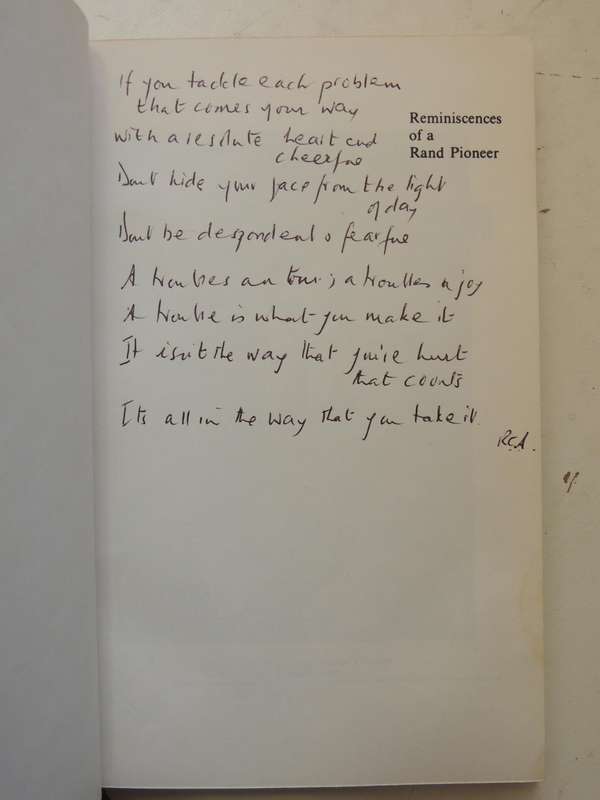 If you tackle each problem
that comes your way
with a resolute heart and
cheerful
Reminiscences
of a
Rand Pioneer
Don't hide your face from the light
of day
Don't be despondent o fearful
A troubles an a troubles a joy
A trouble is what you make it
It isn't the way that you're hurt
that counts
Its all in the way that you take it.
R.C.A.